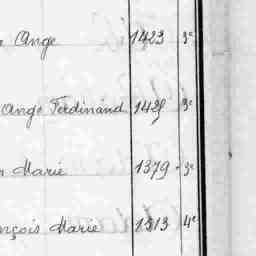 Ange 1423 3e
Ange Ferdinand 1429 3e
Marie 1379 - 3e
nçois Marie 1513 4e